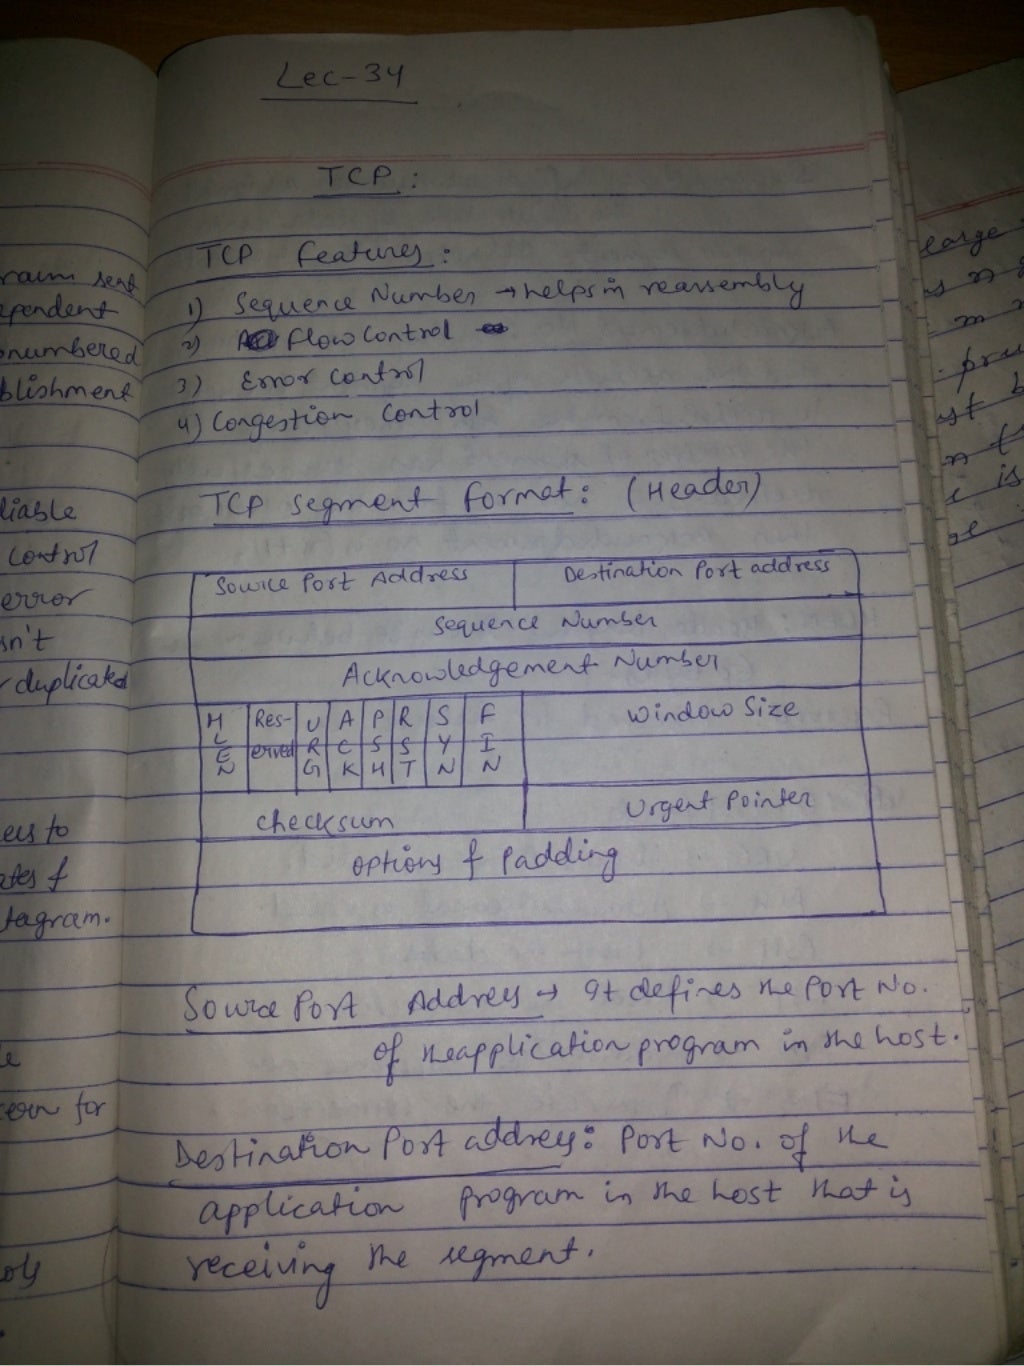 Lec-34
TCP:
TCP Features:
1) Sequence Number → helps in reassembly
2) Flow Control
3) Error Control
4) Congestion Control
TCP segment format: (Header)
Source Port Address Destination Port address
Sequence Number
Acknowledgement Number
HLEN Reserved URG ACK PSH RST SYN FIN Window Size
checksum Urgent Pointer
options & Padding
Source Port Address → It defines the Port No.
of the application program in the host.
Destination Port address: Port No. of the
application program in the host that is
receiving the segment.
sent
numbered
control
error
duplicated
to
for
large
is